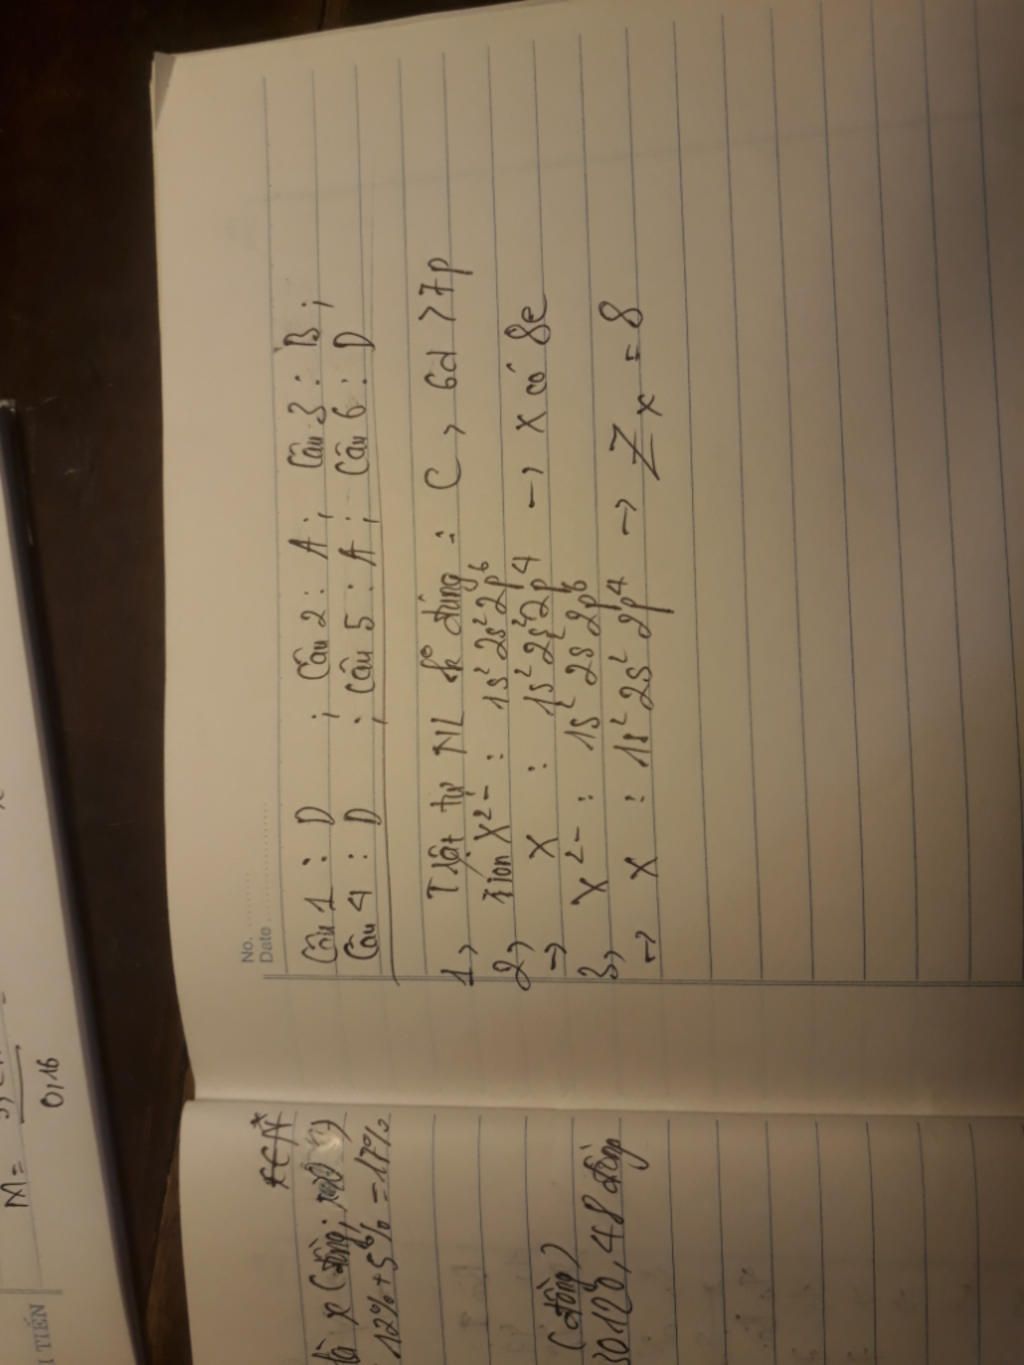 No. ..........
Date ....................
Câu 1 : D ; Câu 2 : A ; Câu 3 : B ;
Câu 4 : D ; Câu 5 : A ; Câu 6 : D
1, Trật tự NL đúng : C, 6d > 7p
2, ion X²⁻ : 1s² 2s² 2p⁶
→ X : 1s² 2s² 2p⁴ → X có 8e
3, X²⁻ : 1s² 2s 2p⁶
→ X : 1s² 2s² 2p⁴ → Zx = 8
M =
0,16
TIẾN
x ∈ N*
là x (đồng;
12% + 5% = 17%
(đồng)
30120,48 đồng